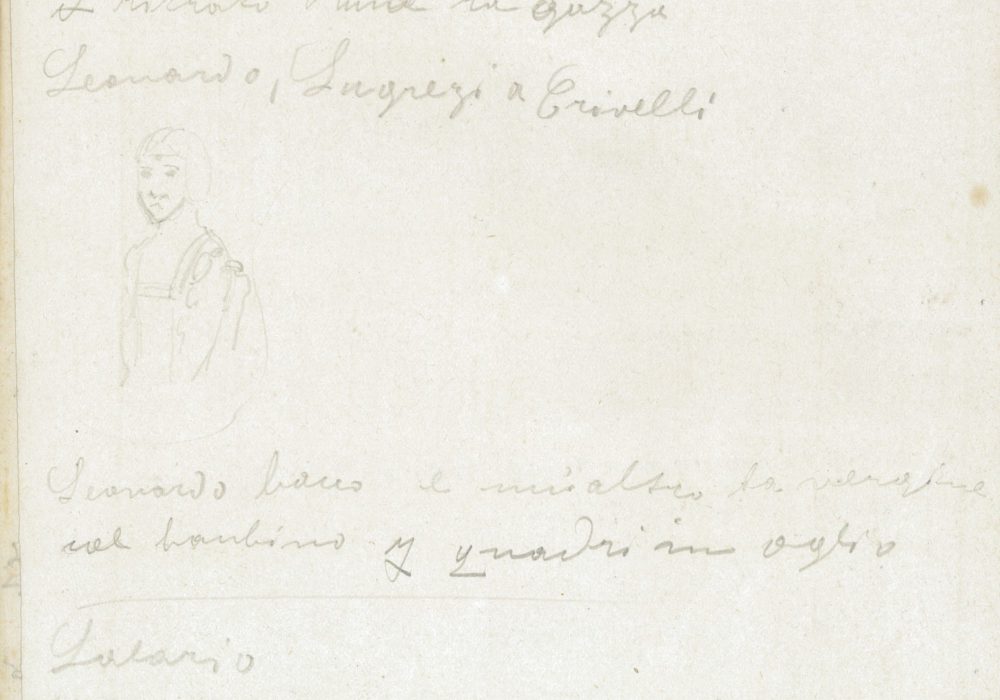 ritratto d'una ragazza
Leonardo, Lugrezia Crivelli
Leonardo bacco e un'altro la vergine
col bambino 4 quadri in oglio
Solario